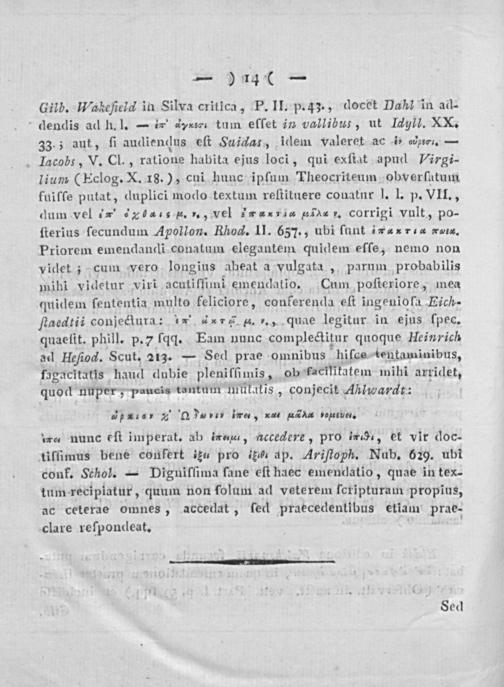 — ) 14 ( —
Gilb. Wakefield in Silva critica, P. II. p. 43., docet Dahl in ad-
dendis ad h. l. — ἐπ' ἄγκεσι tum eſſet in vallibus, ut Idyll. XX.
33.; aut, ſi audiendus eſt Suidas, idem valeret ac ἐν ὤρεσι. —
Iacobs, V. Cl., ratione habita ejus loci, qui exſtat apud Virgi-
lium (Eclog. X. 18.), cui hunc ipſum Theocriteum obverſatum
fuiſſe putat, duplici modo textum reſtituere conatur l. l. p. VII.,
dum vel ἐπ' ὄχθαις μ. ν., vel ἐπακτια μᾶλα ν. corrigi vult, po-
ſterius ſecundum Apollon. Rhod. II. 657., ubi ſunt ἐπακτια πωεα.
Priorem emendandi conatum elegantem quidem eſſe, nemo non
videt; cum vero longius abeat a vulgata, parum probabilis
mihi videtur viri acutiſſimi emendatio. Cum poſteriore, mea
quidem ſententia multo feliciore, conferenda eſt ingenioſa Eich-
ſtaedtii conjectura: ἐπ' ἀκτᾷ μ. ν., quae legitur in ejus ſpec.
quaeſit. phill. p. 7 ſqq. Eam nunc complectitur quoque Heinrich
ad Heſiod. Scut. 213. — Sed prae omnibus hiſce tentaminibus,
ſagacitatis haud dubie pleniſſimis, ob facilitatem mihi arridet,
quod nuper, paucis tantum mutatis, conjecit Ahlwardt:
ὡραιαν χ' Ὠδωνιν ἐπει, και μᾶλα νομευει.
ἐπει nunc eſt imperat. ab ἐπειμι, accedere, pro ἐπιθι, et vir doc-
tiſſimus bene confert ἐξει pro ἐξιθι ap. Ariſtoph. Nub. 629. ubi
conf. Schol. — Digniſſima ſane eſt haec emendatio, quae in tex-
tum recipiatur, quum non ſolum ad veterem ſcripturam propius,
ac ceterae omnes, accedat, ſed praecedentibus etiam prae-
clare reſpondeat.
Sed